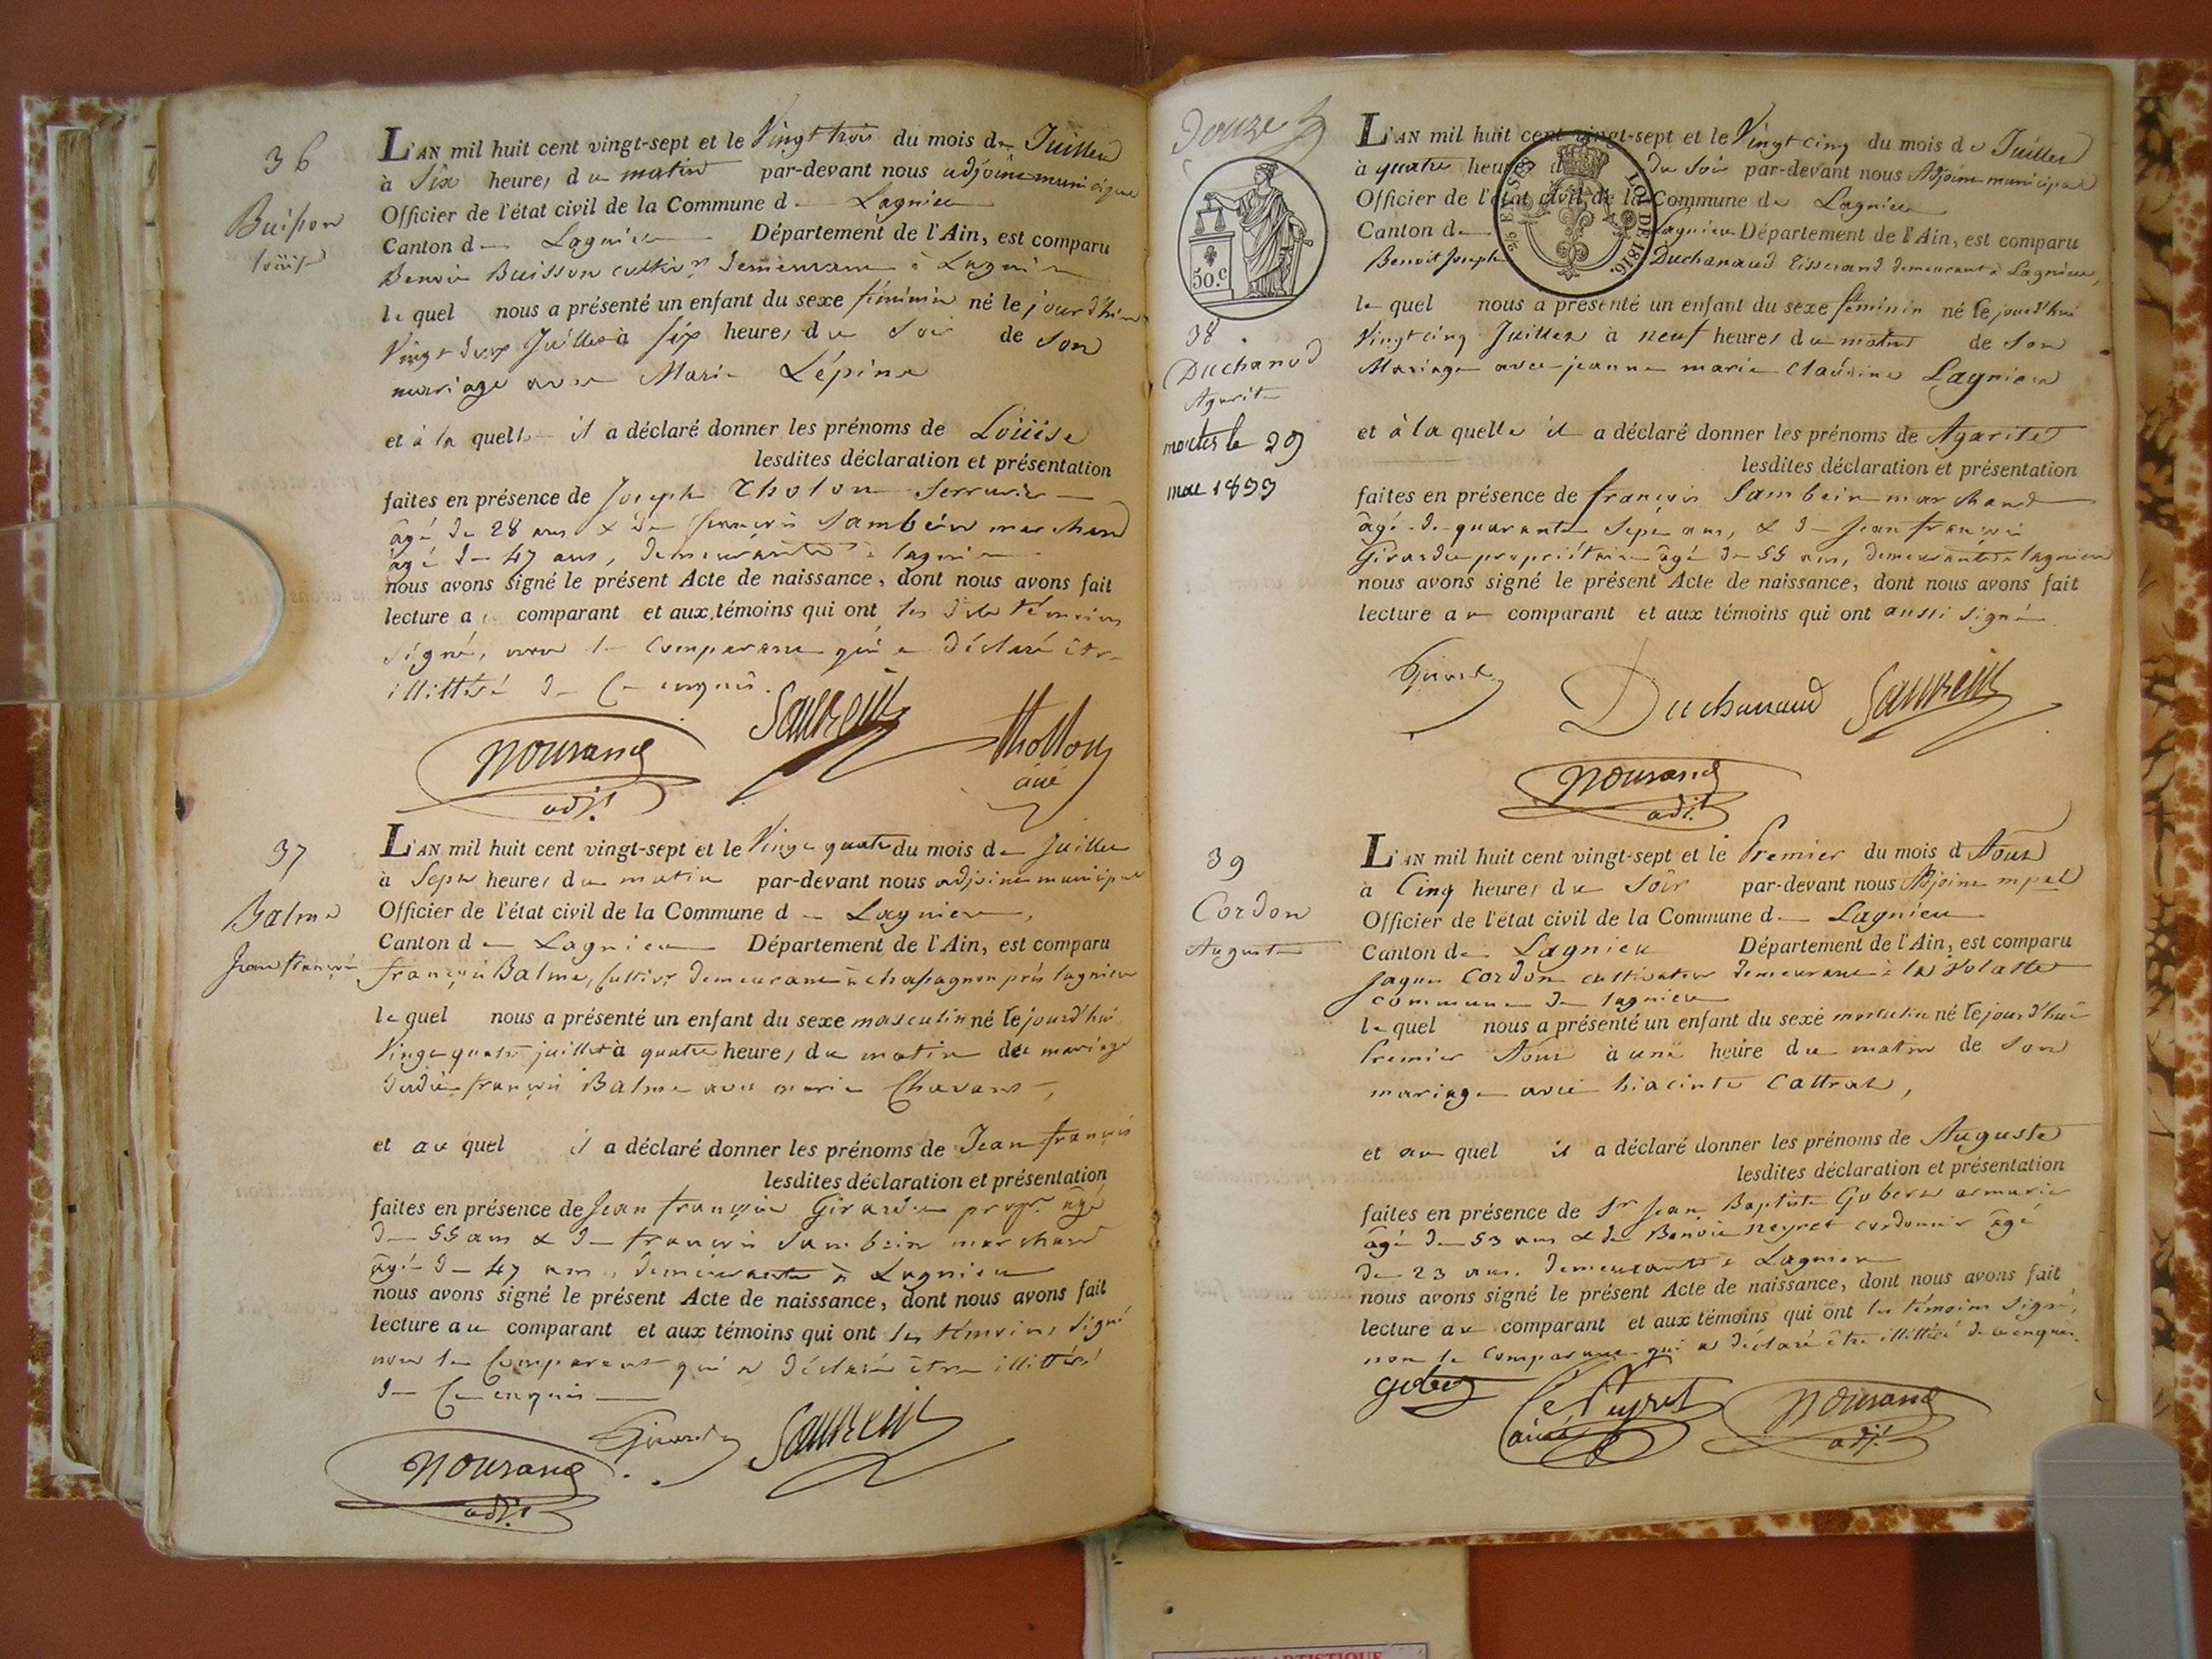 36
Buisson
Loüise
L'AN mil huit cent vingt-sept et le Vingt trois du mois de Juillet
à Six heures du matin par-devant nous adjoint municipal
Officier de l'état civil de la Commune de Lagnieu
Canton de Lagnieu Département de l'Ain, est comparu
Benoit Buisson cultivr demeurant à Lagnieu
le quel nous a présenté un enfant du sexe féminin né le jour d'hier
Vingt deux Juillet à six heures du soir de son
mariage avec Marie Lépine
et à la quelle il a déclaré donner les prénoms de Loüise
lesdites déclaration et présentation
faites en présence de Joseph Tholon serrurier
âgé de 28 ans & de françois Sambein marchand
âgé de 47 ans, demeurants à lagnieu
nous avons signé le présent Acte de naissance, dont nous avons fait
lecture au comparant et aux témoins qui ont les dits témoins
signé, non le Comparant qui a déclaré être
illittéré de Ce enquis.
nourand
adjt
Sambein
thollon
ainé
37
Balme
Jean françois
L'AN mil huit cent vingt-sept et le Vingt quatre du mois de Juillet
à Sept heures du matin par-devant nous adjoint municipal
Officier de l'état civil de la Commune de Lagnieu,
Canton de Lagnieu Département de l'Ain, est comparu
françois Balme, Cultivr demeurant à chapagnon près lagnieu
le quel nous a présenté un enfant du sexe masculin né le jourd'hui
Vingt quatre juillet à quatre heures du matin du mariage
dudit françois Balme avec marie Chavant,
et au quel il a déclaré donner les prénoms de Jean françois
lesdites déclaration et présentation
faites en présence de Jean françois Girardin propr. âgé
de 55 ans & de françois Sambein marchand
âgé de 47 ans, demeurants à Lagnieu
nous avons signé le présent Acte de naissance, dont nous avons fait
lecture au comparant et aux témoins qui ont les témoins signé
non le Comparant qui a déclaré être illittéré
de Ce enquis
nourand
adjt
Sambein
Douze
50.c
38
Duchanod
Agarite
morte le 29
mai 1899
L'AN mil huit cent vingt-sept et le Vingt cinq du mois de Juillet
à quatre heures du soir par-devant nous Adjoint municipal
Officier de l'état civil de la Commune de Lagnieu
Canton de Lagnieu Département de l'Ain, est comparu
Benoit Joseph Duchanaud Tisserand demeurant à Lagnieu,
LOI DE 1816
le quel nous a présenté un enfant du sexe féminin né le jourd'hui
Vingt cinq Juillet à neuf heures du matin de son
Mariage avec jeanne marie Claudine Lagnieu
et à la quelle il a déclaré donner les prénoms de Agarite
lesdites déclaration et présentation
faites en présence de françois Sambein marchand
âgé de quarante sept ans, & de Jean françois
Girardin propriétaire âgé de 55 ans, demeurants à lagnieu
nous avons signé le présent Acte de naissance, dont nous avons fait
lecture au comparant et aux témoins qui ont aussi signé
Duchanaud
Sambein
nourand
adjt
39
Cordon
Auguste
L'AN mil huit cent vingt-sept et le Premier du mois d'Aout
à Cinq heures du Soir par-devant nous Adjoint mpal
Officier de l'état civil de la Commune de Lagnieu
Canton de Lagnieu Département de l'Ain, est comparu
Jaques Cordon cultivateur demeurant à la Volatte
commune de lagnieu
le quel nous a présenté un enfant du sexe masculin né le jourd'hui
Premier Aout à une heure du matin de son
mariage avec hiacinte Cattrat,
et au quel il a déclaré donner les prénoms de Auguste
lesdites déclaration et présentation
faites en présence de Sr Jean Baptiste Gobert armurier
âgé de 53 ans & de Benoit neyret cordonnier âgé
de 23 ans. demeurants à Lagnieu
nous avons signé le présent Acte de naissance, dont nous avons fait
lecture au comparant et aux témoins qui ont les témoins signé,
non le comparant qui a déclaré être illittéré de ce enquis.
gobert
Neyret
ainé
nourand
adjt